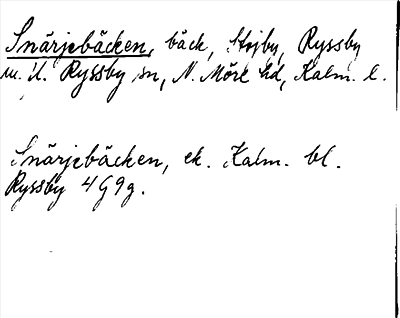 Snärjebäcken, bäck, Stojby, Ryssby
m. fl. Ryssby sn, N. Möre hd, Kalm. l.
Snärjebäcken, ek. Kalm. bl.
Ryssby 4G9g.